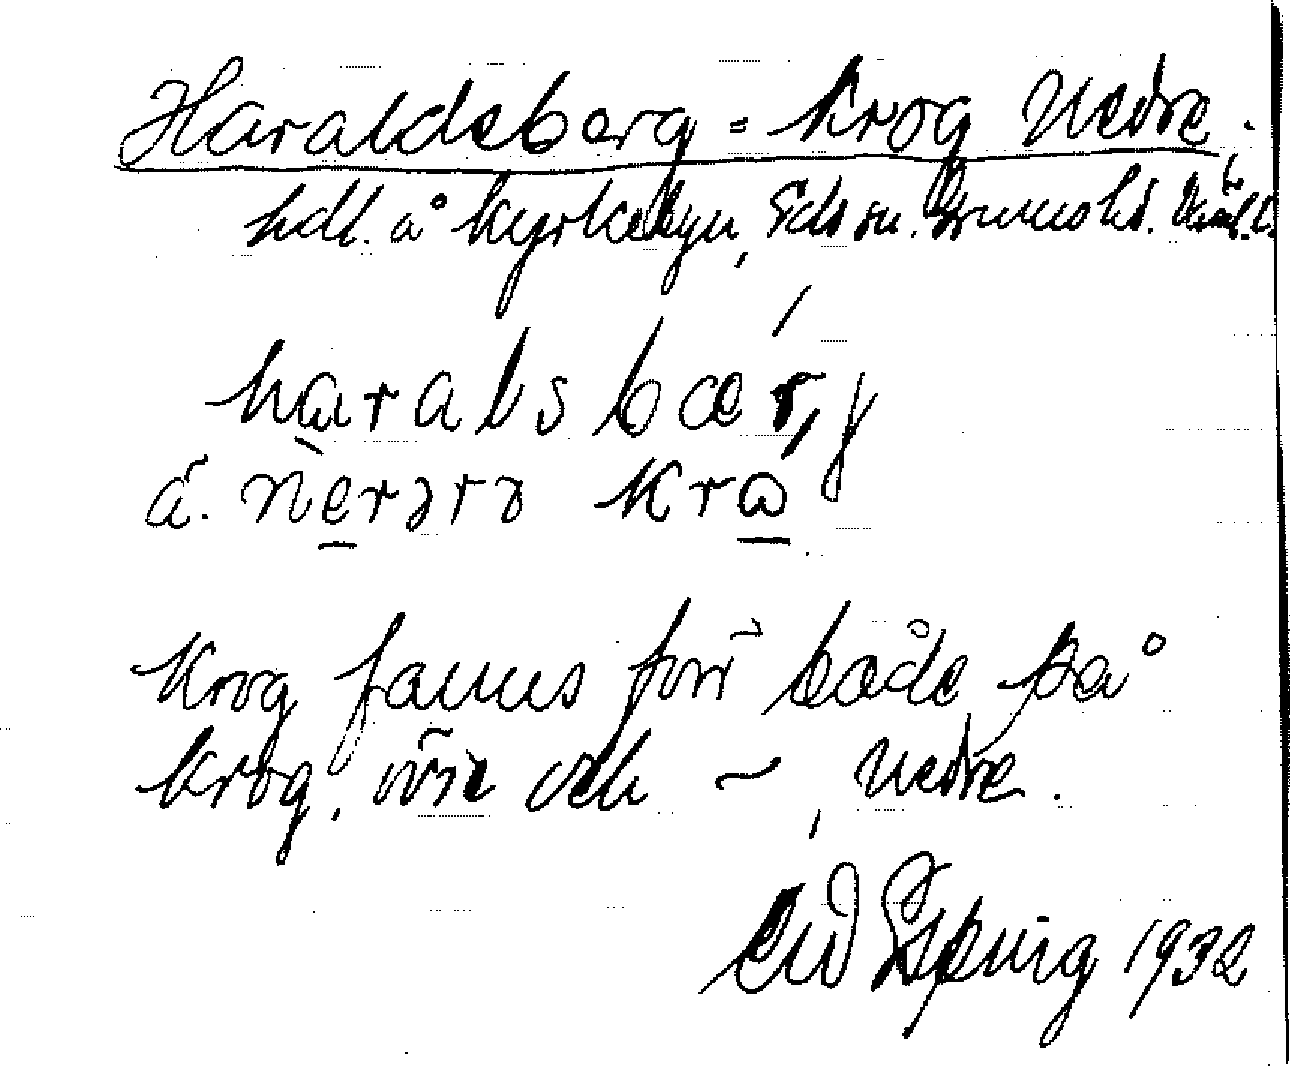 Haraldsberg = Krog Nedre.
hdl. å Kyrkebyn, Eds sn. Grums hd. Värml. l.
haralsbær,j
á. nerǝrǝ krɷ
Krog fanns förr både på
Krog, övre och ~, nedre.
1932